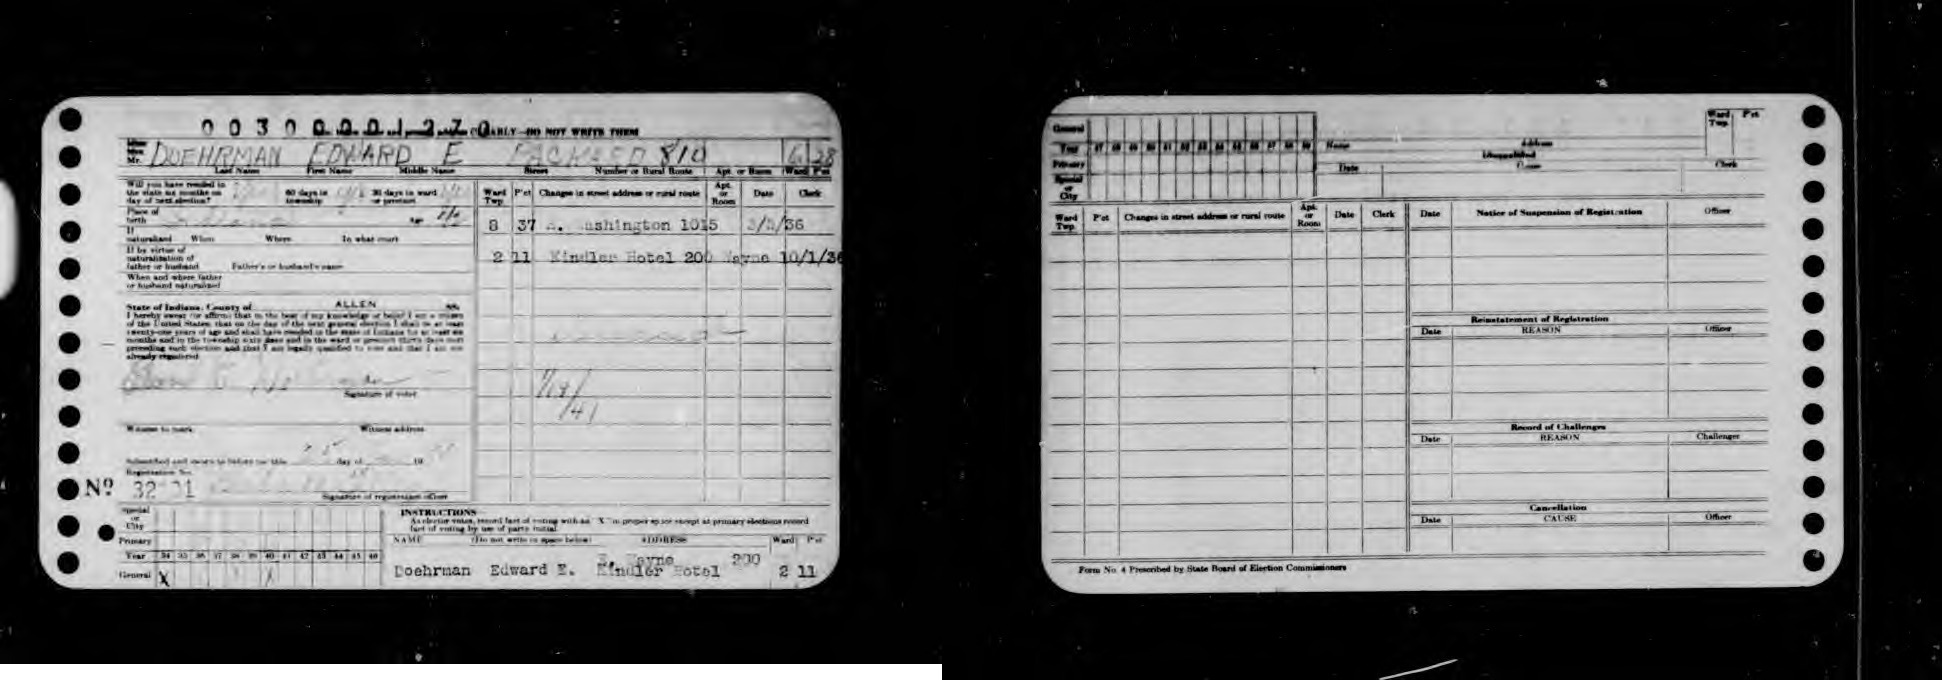 00300001270 CLEARLY—DO NOT WRITE THEM
Miss
Mrs.
Mr. DOEHRMAN EDWARD E PACKARD 810 6 28
Last Name First Name Middle Name Street Number or Rural Route Apt. or Room Ward P'ct
Will you have resided in the state six months on day of next election? 60 days in township 30 days in ward or precinct
Place of birth Indiana Age
If naturalized When Where In what court
If by virtue of naturalization of father or husband Father's or husband's name
When and where father or husband naturalized
Ward Twp. P'ct Changes in street address or rural route Apt. or Room Date Clerk
8 37 Washington 1015 /36
2 11 Kindler Hotel 200 Wayne 10/1/36
State of Indiana, County of ALLEN SS:
I hereby swear (or affirm) that to the best of my knowledge or belief I am a citizen
of the United States, that on the day of the next general election I shall be at least
twenty-one years of age and shall have resided in the state of Indiana for at least six
months and in the township sixty days and in the ward or precinct thirty days next
preceding such election and that I am legally qualified to vote and that I am not
already registered
Signature of voter
/41
Witness to mark Witness address
Subscribed and sworn to before me this day of 19
Registration No.
No. 32 1
Signature of registration officer
Special or City
Primary
Year 34 35 36 37 38 39 40 41 42 43 44 45 46
General X
INSTRUCTIONS
As elector votes, record fact of voting with an "X" in proper space except at primary elections record
fact of voting by use of party initial
NAME (Do not write in space below) ADDRESS Ward P'ct
Wayne 200
Doehrman Edward E. Kindler Hotel 2 11
General
Year 47 48 49 50 51 52 53 54 55 56 57 58 59
Primary
Special or City
Name Address
Date Clerk
Ward Twp. P'ct
Ward Twp. P'ct Changes in street address or rural route Apt. or Room Date Clerk
Date Notice of Suspension of Registration Officer
Reinstatement of Registration
Date REASON Officer
Record of Challenges
Date REASON Challenger
Cancellation
Date CAUSE Officer
Form No. 4 Prescribed by State Board of Election Commissioners